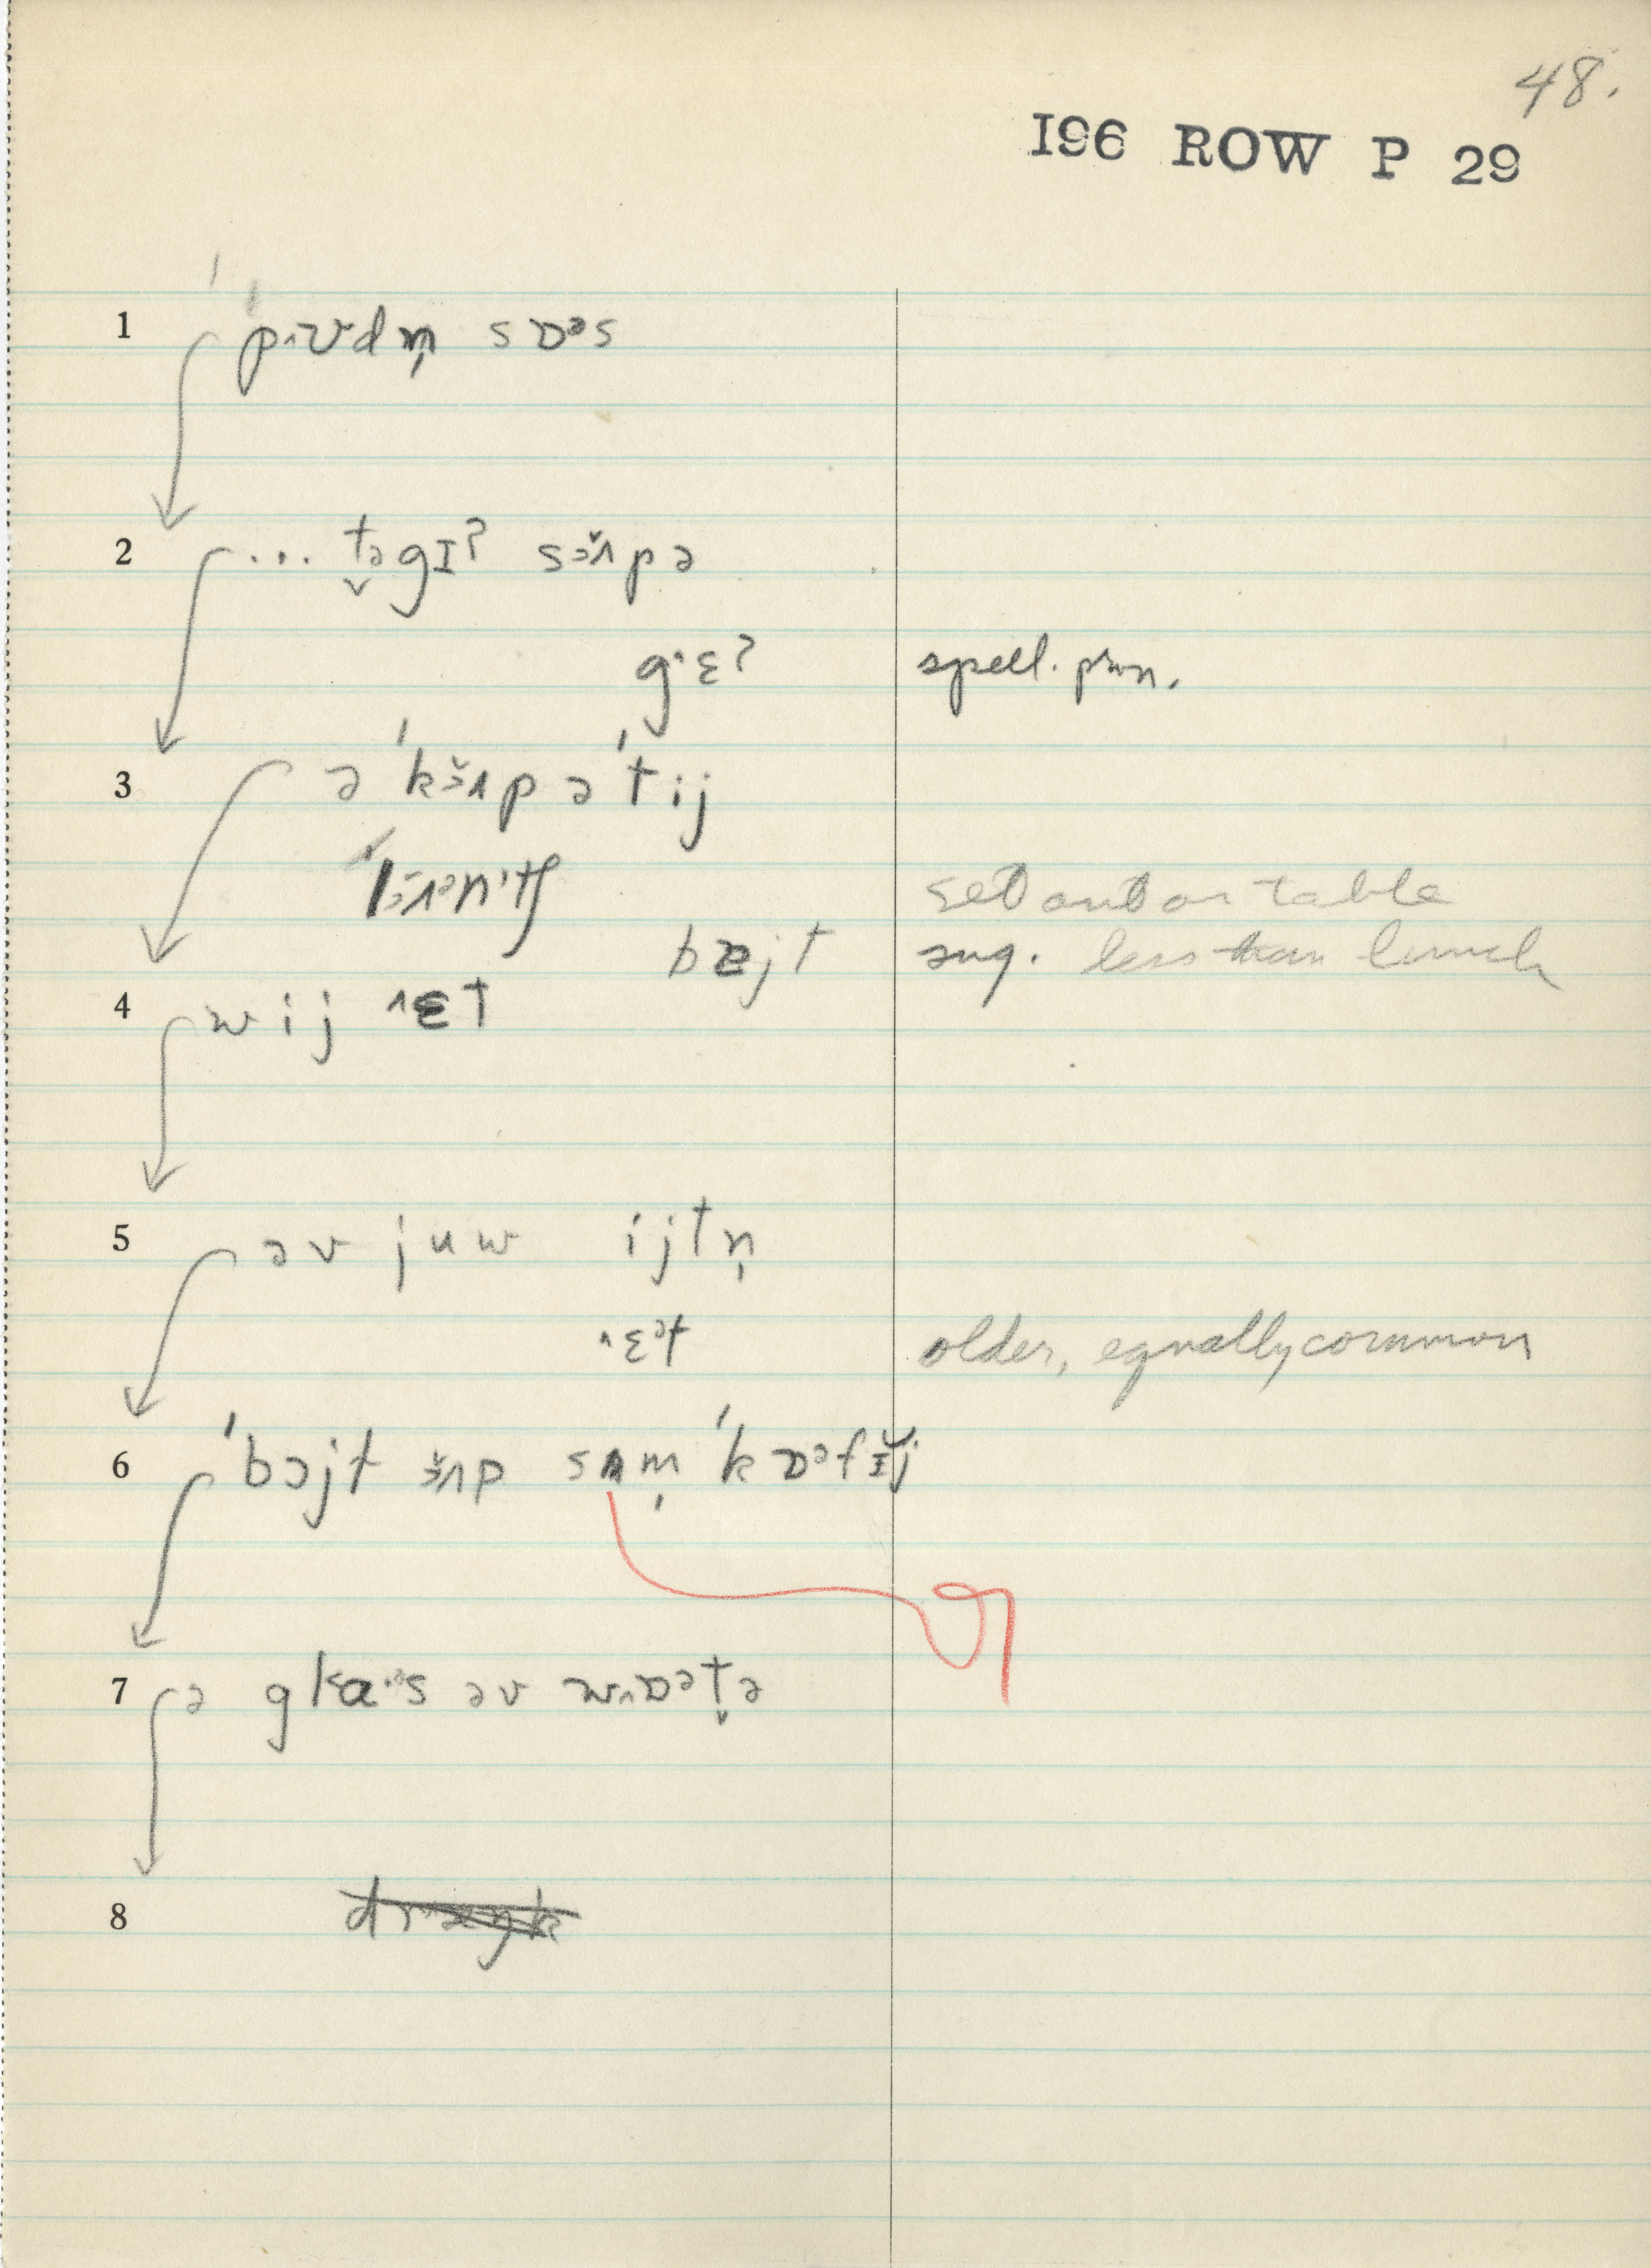 48.
I96 ROW P 29
1 ˈpʌʊdn̩ sɒᵊs
2 ... t̬əgɪʔ sɜ̆ʌpə
g·ɛʔ spell. pron.
3 ə ˈkɜ̆ʌp ə ˈtij
set out on table
bɐjt sug. less than lunch
4 wij ^ɛt
5 əv juw ijtn̩
^ɛᵊt older, equally common
6 ˈbɔjt ɜ̆ʌp sʌm̩ ˈkɒᵊfɪ̆j
7 ə glaˑᵊs əv wʌɒᵊt̬ə
8